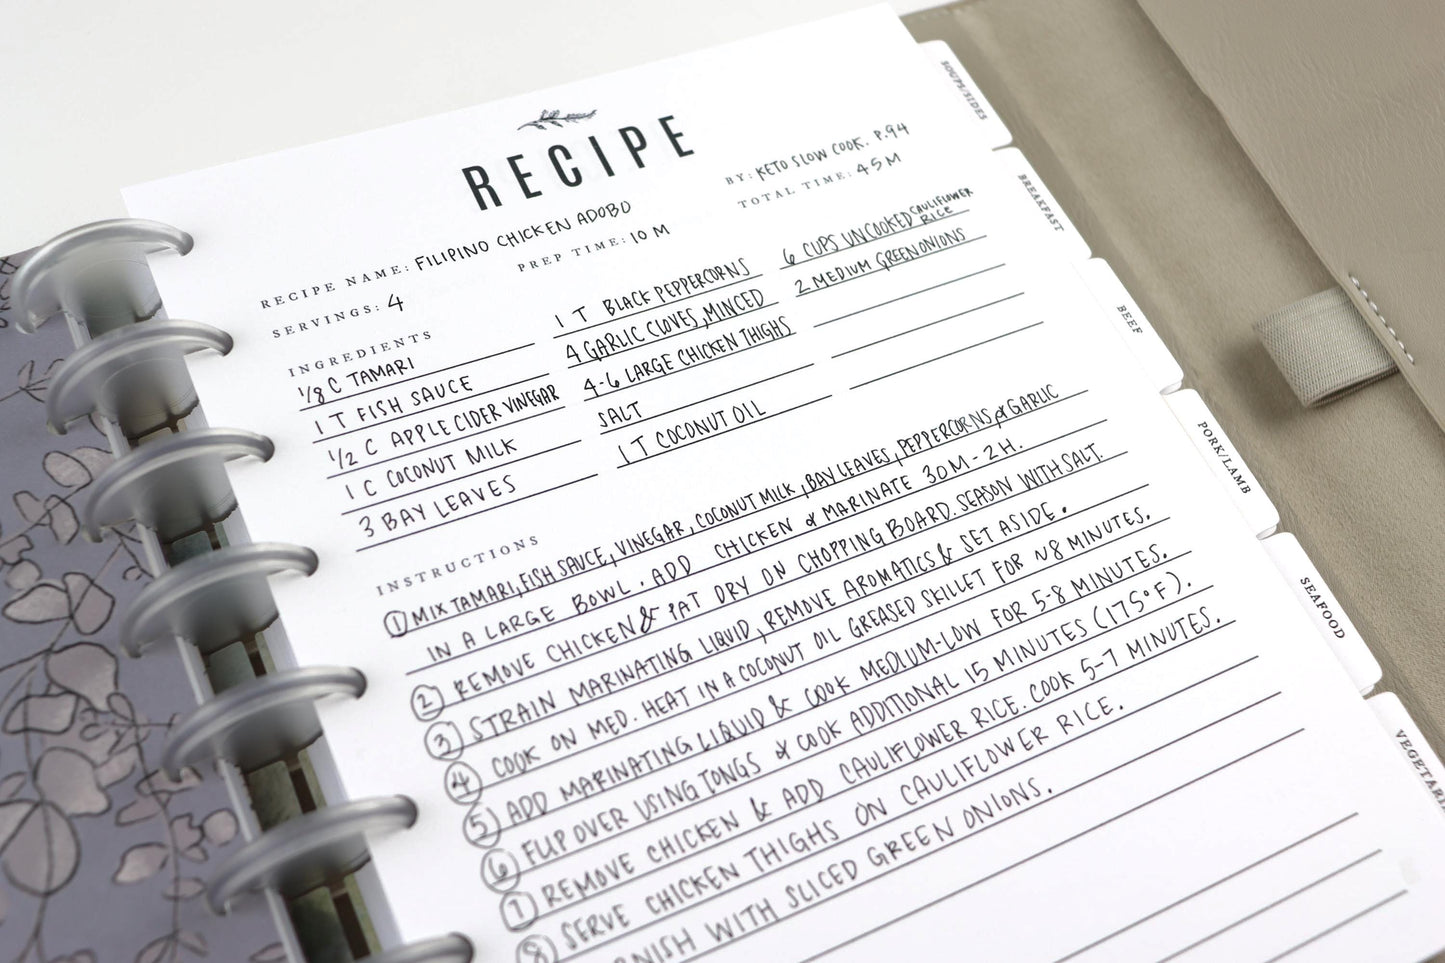 RECIPE
RECIPE NAME: FILIPINO CHICKEN ADOBO
BY: KETO SLOW COOK. P.94
SERVINGS: 4
PREP TIME: 10 M
TOTAL TIME: 45 M
INGREDIENTS
1/8 C TAMARI
1 T FISH SAUCE
1/2 C APPLE CIDER VINEGAR
1 C COCONUT MILK
3 BAY LEAVES
1 T BLACK PEPPERCORNS
4 GARLIC CLOVES, MINCED
4-6 LARGE CHICKEN THIGHS
SALT
1 T COCONUT OIL
6 CUPS UNCOOKED CAULIFLOWER RICE
2 MEDIUM GREEN ONIONS
INSTRUCTIONS
1 MIX TAMARI, FISH SAUCE, VINEGAR, COCONUT MILK, BAY LEAVES, PEPPERCORNS, & GARLIC
IN A LARGE BOWL. ADD CHICKEN & MARINATE 30M-2H.
2 REMOVE CHICKEN & PAT DRY ON CHOPPING BOARD. SEASON WITH SALT.
3 STRAIN MARINATING LIQUID, REMOVE AROMATICS & SET ASIDE.
4 COOK ON MED. HEAT IN A COCONUT OIL GREASED SKILLET FOR ~8 MINUTES.
5 ADD MARINATING LIQUID & COOK MEDIUM-LOW FOR 5-8 MINUTES.
6 FLIP OVER USING TONGS & COOK ADDITIONAL 15 MINUTES (175°F).
7 REMOVE CHICKEN & ADD CAULIFLOWER RICE. COOK 5-7 MINUTES.
8 SERVE CHICKEN THIGHS ON CAULIFLOWER RICE.
WITH SLICED GREEN ONIONS.
SOUPS/SIDES
BREAKFAST
BEEF
PORK/LAMB
SEAFOOD